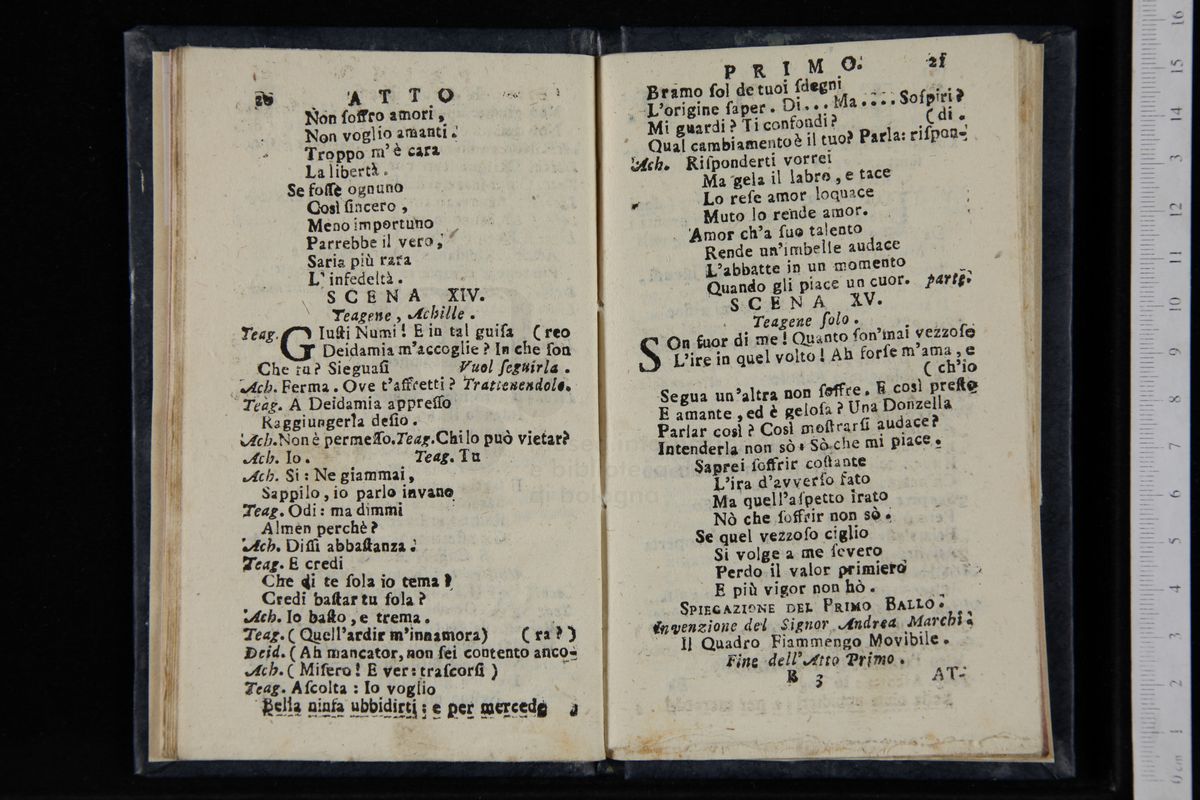 20 ATTO
Non ſoffro amori,
Non voglio amanti.
Troppo m'è cara
La libertà.
Se foſſe ognuno
Così ſincero,
Meno importuno
Parrebbe il vero,
Saria più rara
L'infedeltà.
SCENA XIV.
Teagene, Achille.
Teag. GIuſti Numi! E in tal guiſa (reo
Deidamia m'accoglie? In che ſon
Che tu? Sieguaſi Vuol ſeguirla.
Ach. Ferma. Ove t'affretti? Trattenendolo.
Teag. A Deidamia appreſſo
Raggiungerla deſio.
Ach. Non è permeſſo. Teag. Chi lo può vietar?
Ach. Io. Teag. Tu
Ach. Si: Ne giammai,
Sappilo, io parlo invano
Teag. Odi: ma dimmi
Almen perchè?
Ach. Diſſi abbaſtanza.
Teag. E credi
Che di te ſola io tema?
Credi baſtar tu ſola?
Ach. Io baſto, e trema.
Teag. (Quell'ardir m'innamora) (ra?)
Deid. (Ah mancator, non ſei contento anco-
Ach. (Miſero! E ver: traſcorſi)
Teag. Aſcolta: Io voglio
Bella ninfa ubbidirti; e per mercede
PRIMO. 21
Bramo ſol de tuoi ſdegni
L'origine ſaper. Di... Ma.... Soſpiri?
Mi guardi? Ti confondi? (di.
Qual cambiamento è il tuo? Parla: riſpon-
Ach. Riſponderti vorrei
Ma gela il labro, e tace
Lo reſe amor loquace
Muto lo rende amor.
Amor ch'a ſuo talento
Rende un'imbelle audace
L'abbatte in un momento
Quando gli piace un cuor. parte.
SCENA XV.
Teagene ſolo.
SOn fuor di me! Quanto ſon'mai vezzoſe
L'ire in quel volto! Ah forſe m'ama, e
(ch'io
Segua un'altra non ſoffre. E così preſto
E amante, ed è geloſa? Una Donzella
Parlar così? Così moſtrarſi audace?
Intenderla non sò: Sò che mi piace.
Saprei ſoffrir coſtante
L'ira d'avverſo fato
Ma quell'aſpetto irato
Nò che ſoffrir non sò.
Se quel vezzoſo ciglio
Si volge a me ſevero
Perdo il valor primiero
E più vigor non hò.
SPIEGAZIONE DEL PRIMO BALLO.
Invenzione del Signor Andrea Marchi.
Il Quadro Fiammengo Movibile.
Fine dell'Atto Primo.
B 3 AT-